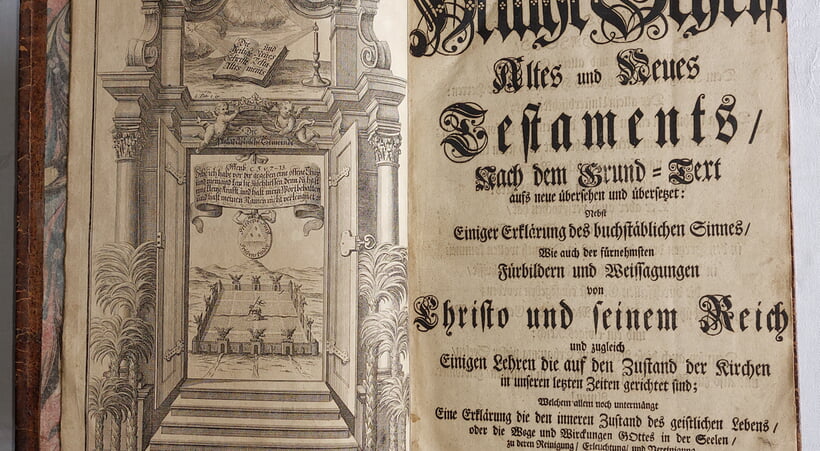 Die
Heilige
Schrifft
Altes
und
Neues
Testa-
ments
Die
Philadelphische Gemeinde
Offenb. c. 3. v. 7. 13.
Sihe ich habe vor dir gegeben eine offene Thür
und niemand kan sie zuschliessen denn du hast
eine kleine krafft, und hast mein Wort behalten
und hast meinen Namen nicht verleugnet
Heilige Schrift
Altes und Neues
Testaments/
Nach dem Grund=Text
aufs neue übersehen und übersetzet:
Nebst
Einiger Erklärung des buchstäblichen Sinnes/
Wie auch der fürnehmsten
Fürbildern und Weissagungen
von
Christo und seinem Reich
und zugleich
Einigen Lehren die auf den Zustand der Kirchen
in unseren letzten Zeiten gerichtet sind;
Welchem allem noch untermängt
Eine Erklärung die den inneren Zustand des geistlichen Lebens/
oder die Wege und Wirckungen GOttes in der Seelen/
zu deren Reinigung/ Erleuchtung/ und Vereinigung